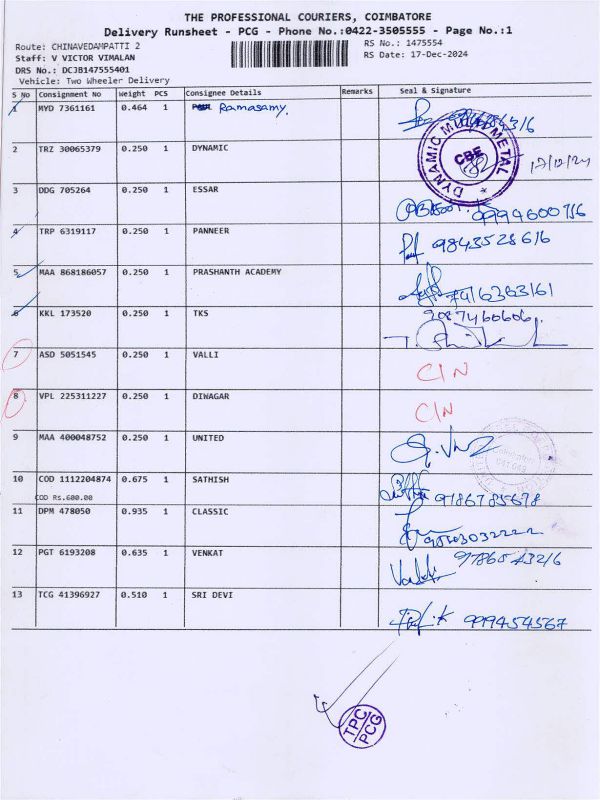 THE PROFESSIONAL COURIERS, COIMBATORE
Delivery Runsheet - PCG - Phone No.:0422-3505555 - Page No.:1
Route: CHINAVEDAMPATTI 2
RS No.: 1475554
Staff: V VICTOR VIMALAN
RS Date: 17-Dec-2024
DRS No.: DCJB147555401
Vehicle: Two Wheeler Delivery
S No Consignment No Weight PCS Consignee Details Remarks Seal & Signature
1 MYD 7361161 0.464 1 Ramasamy.
2 TRZ 30065379 0.250 1 DYNAMIC
DYNAMIC METAL
CBE
17/12/24
3 DDG 705264 0.250 1 ESSAR
4 TRP 6319117 0.250 1 PANNEER 9843528616
5 MAA 868186057 0.250 1 PRASHANTH ACADEMY 7416363161
6 KKL 173520 0.250 1 TKS 9087460606
7 ASD 5051545 0.250 1 VALLI C/N
8 VPL 225311227 0.250 1 DIWAGAR C/N
9 MAA 400048752 0.250 1 UNITED
10 COD 1112204874 0.675 1 SATHISH 9186785678
COD Rs.600.00
11 DPM 478050 0.935 1 CLASSIC
12 PGT 6193208 0.635 1 VENKAT
13 TCG 41396927 0.510 1 SRI DEVI 9994454567
TPC
PCG